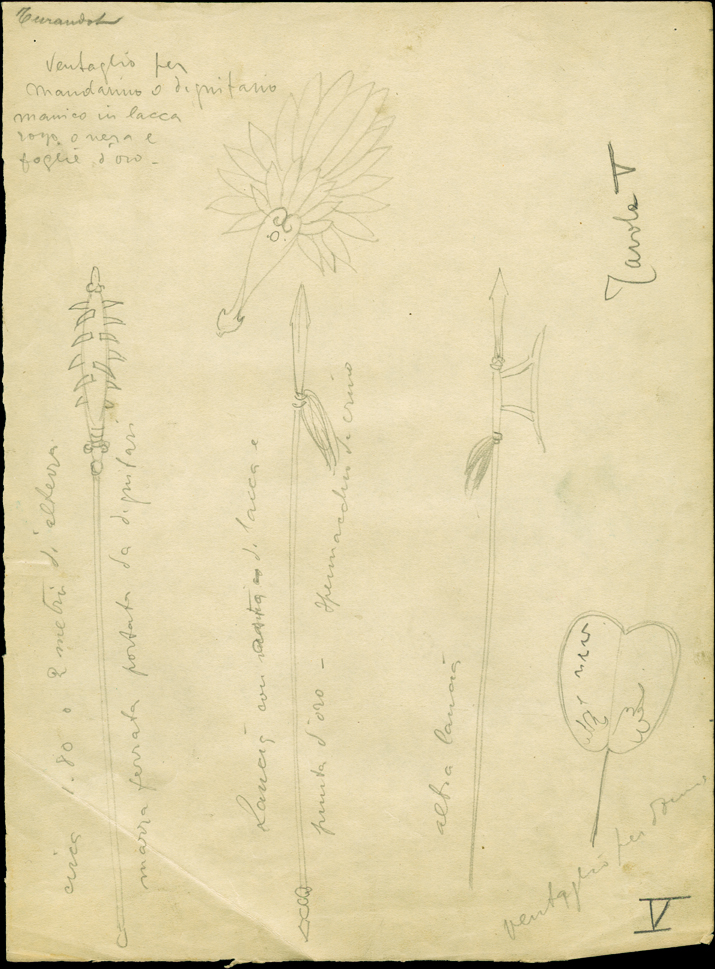 Turandot
Ventaglio per
mandarino o dignitario
manico in lacca
rossa o nera e
foglie d'oro -
Tavola V
circa 1.80 o 2 metri di altezza
mazza ferrata portata da dignitari
Lancia con di lacca e
punta d'oro - pennacchio di crino
altra lancia
ventaglio per
V